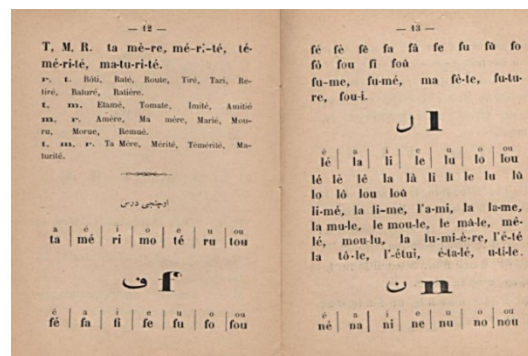 — 12 —
T, M, R. ta mè-re, mé-ri-té, té-
mé-ri-té, ma-tu-ri-té.
r. t. Rôti, Raté, Route, Tiré, Tari, Re-
tiré, Raturé, Ratière.
t. m. Etamé, Tomate, Imité, Amitié
m. r. Amère, Ma mère, Marié, Mou-
ru, Morue, Remué.
t. m. r. Ta Mère, Mérité, Témérité, Ma-
turité.
درس
a é i o é u ou
ta mé ri mo té ru tou
ف f
é a i e u o ou
fé fa fi fe fu fo fou
— 13 —
fé fè fê fa fâ fe fu fû fo
fô fou fî foû
fu-me, fu-mé, ma fê-te, fu-tu-
re, fou-i.
ل l
é a i e u o ou
lé la li le lu lo lou
lé lè lê la là li lî le lu lû
lo lô lou loû
li-mé, la li-me, l'a-mi, la la-me,
la mu-le, le mou-le, le mâ-le, mê-
lé, mou-lu, la lu-mi-è-re, l'é-té
la tô-le, l'-étui, é-ta-lé, u-ti-le.
ن n
é a i e u o ou
né na ni ne nu no nou